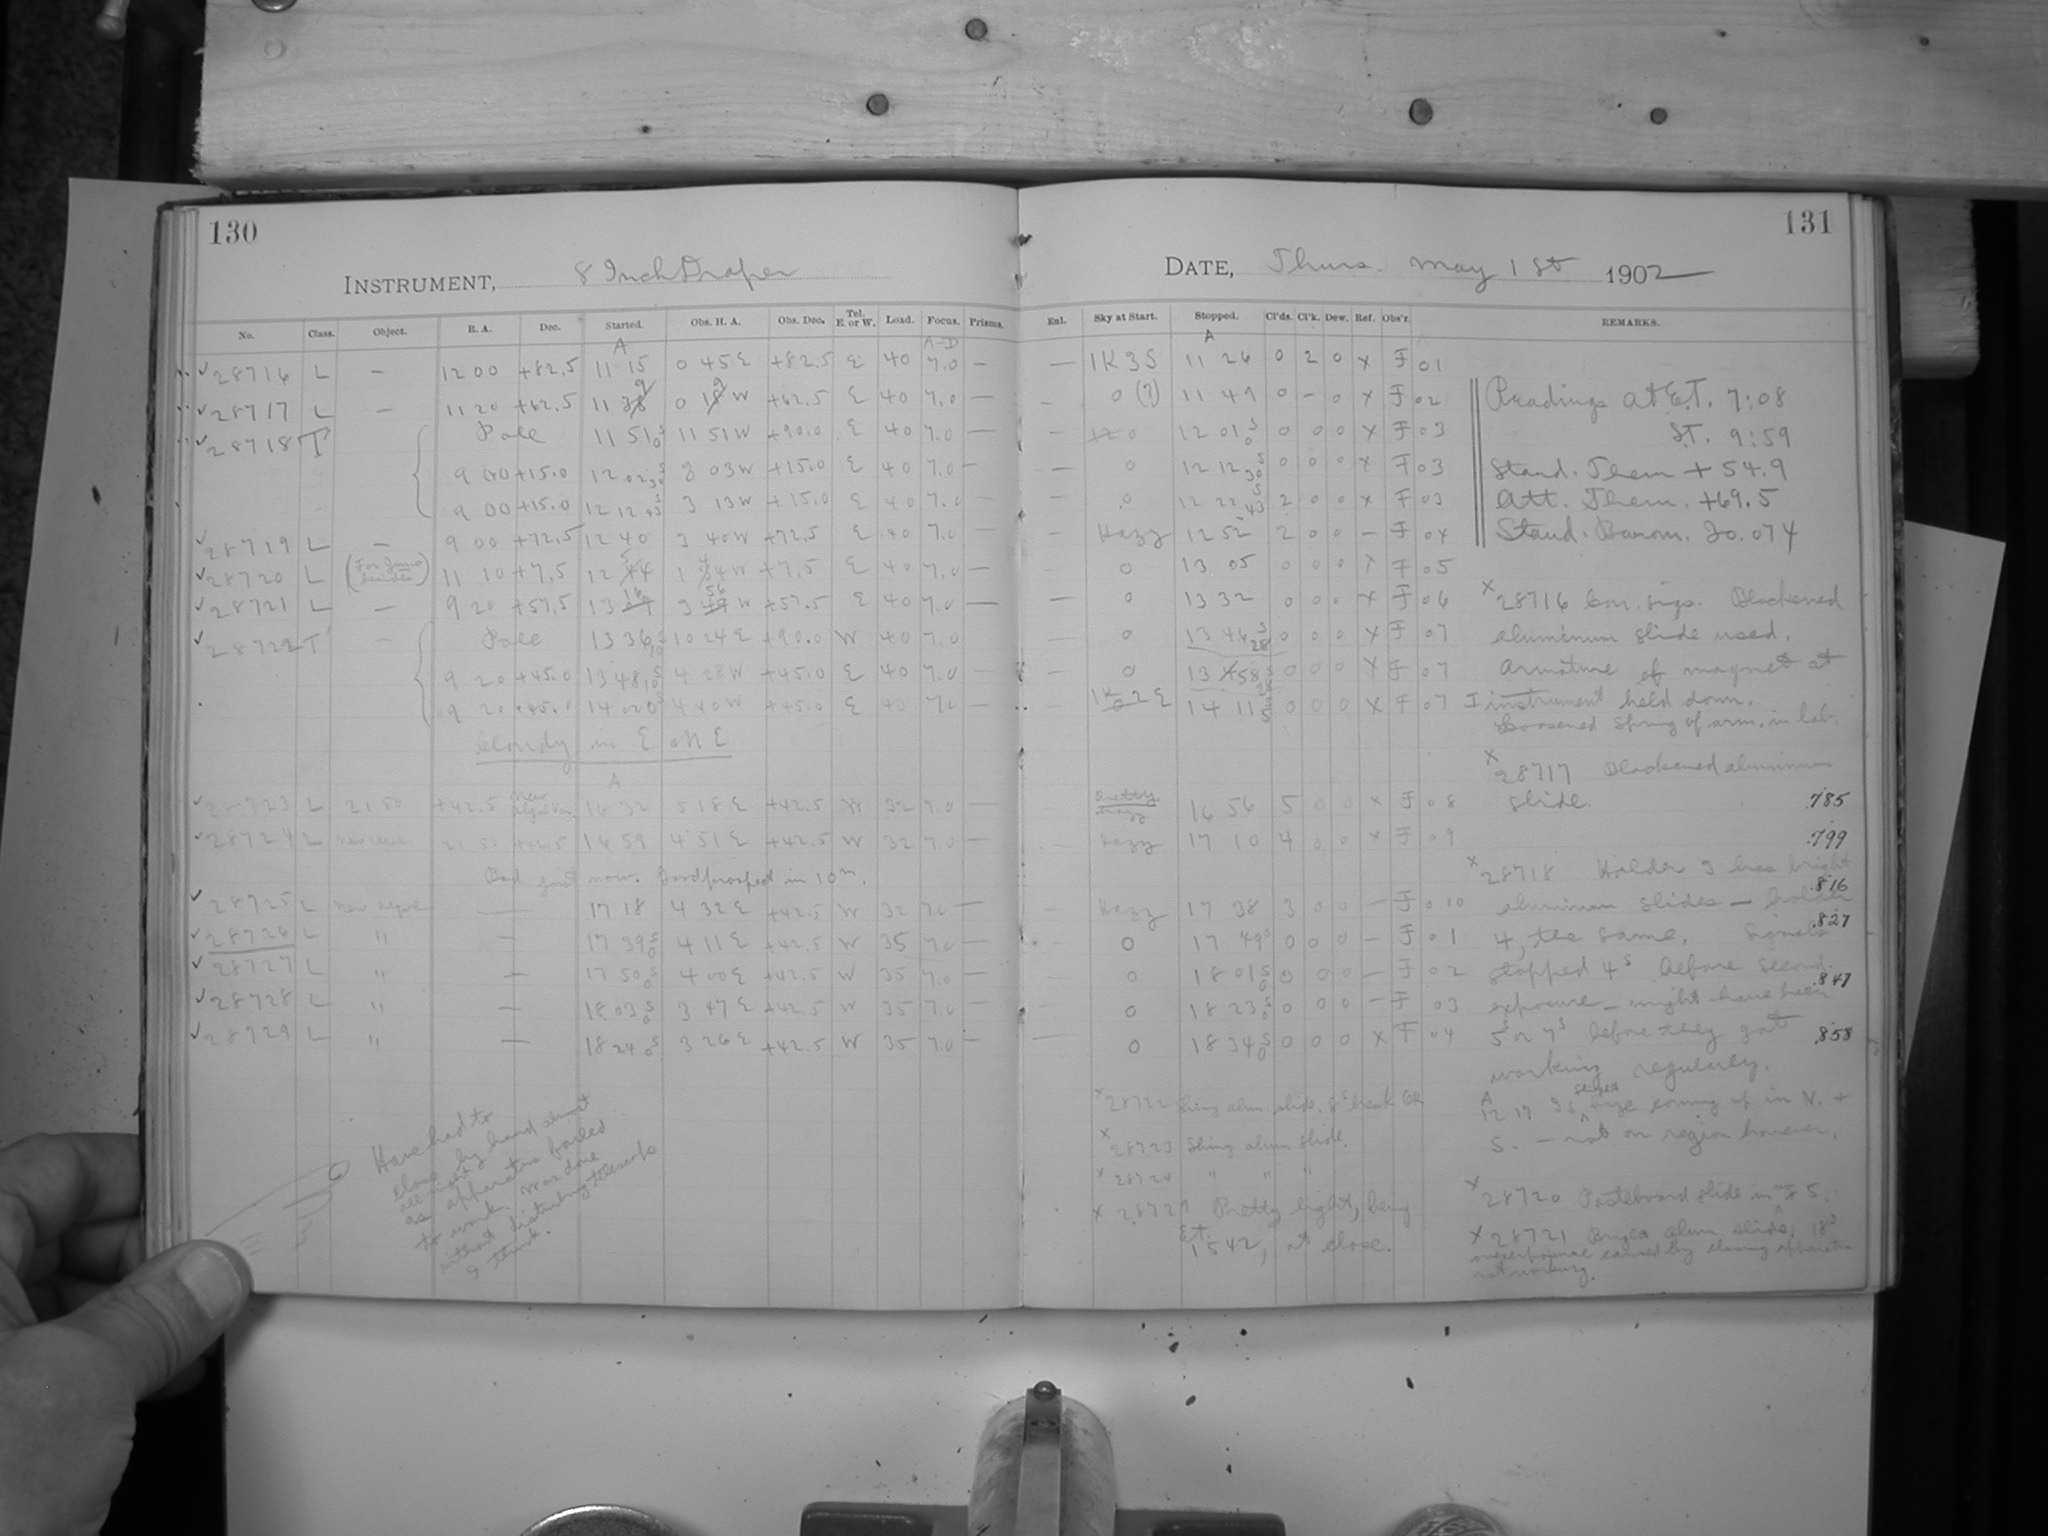 130
131
INSTRUMENT, 8 Inch Draper
DATE, Thurs. May 1st 1902
No. Class. Object. R. A. Dec. Started. Obs. H. A. Obs. Dec. Tel. E. or W. Load. Focus. Prisms. Enl. Sky at Start. Stopped. Cl'ds. Cl'k. Dew. Ref. Obs'r. REMARKS.
A A-D A
✓28716 L — 12 00 +82.5 11 15 0 45 E +82.5 E 40 7.0 — — 1K3S 11 26 0 2 0 x F 01
✓28717 L — 11 20 +62.5 11 38 9 0 18 9 W +62.5 E 40 7.0 — — 0 (?) 11 49 0 – 0 x F 02
✓28718 T' Pole 11 51 0s 11 51 W +90.0 E 40 7.0 0 12 01 0s 0 0 0 x F 03
9 00 +15.0 12 02 30s 3 03 W +15.0 E 40 7.0 — — 0 12 12 30s 0 0 0 x F 03
9 00 +15.0 12 12 43s 3 13 W +15.0 E 40 7.0 — — 0 12 22 43s 2 0 0 x F 03
✓28719 L — 9 00 +72.5 12 40 3 40 W +72.5 E 40 7.0 — Hazy 12 52 2 0 0 – F 04
✓28720 L 11 10 +7.5 12 44 5 1 34 4 W +7.5 E 40 7.0 — — 0 13 05 0 0 0 x F 05
✓28721 L — 9 20 +57.5 13 16 3 56 W +57.5 E 40 7.0 — — 0 13 32 0 0 0 x F 06
✓28722 T' — Pole 13 36 10 24 E +90.0 W 40 7.0 — 0 13 46 28s 0 0 0 x F 07
9 20 +45.0 13 48 4 28 W +45.0 E 40 7.0 — — 0 13 58 0 0 0 x F 07
9 20 +45.0 14 00 4 40 W +45.0 E 40 7.0 — — 2 E 14 11 0 0 0 x F 07
Cloudy in E & N E
A
✓28723 L 21 50 +42.5 New 16 32 5 18 E +42.5 W 32 7.0 — Pretty hazy 16 56 5 0 0 x F 08
✓28724 L 21 50 +42.5 16 59 4 51 E +42.5 W 32 7.0 — Hazy 17 10 4 0 0 x F 09
Bad just now. Good prospect in 10m.
✓28725 L — 17 18 4 32 E +42.5 W 32 7.0 — — Hazy 17 38 3 0 0 – F 0 10
✓28726 L " — 17 39 0s 4 11 E +42.5 W 35 7.0 — — 0 17 49 0 0 0 – F 01
✓28727 L " — 17 50 0s 4 00 E +42.5 W 35 7.0 — — 0 18 01 0s 0 0 0 – F 02
✓28728 L " — 18 03 0s 3 47 E +42.5 W 35 7.0 — — 0 18 23 0s 0 0 0 – F 03
✓28729 L " — 18 24 0s 3 26 E +42.5 W 35 7.0 — — 0 18 34 0s 0 0 0 x F 04
Have had to
close by hand almost
all night
as apparatus failed
to work. Was done
without disturbing telescope
I think.
x28722 Shiny alum. slide.
x28723 Shiny alum slide.
x28724 " " "
x 28729 Pretty light, being
E.T. 1542, at close.
Readings at E.T. 7:08
S.T. 9:59
Stand. Therm +54.9
Att. Therm. +69.5
Stand. Barom. 30.074
x28716 Blackened
aluminum slide used.
Armature of magnet at
instrument held down.
Loosened spring of arm. in lab.
x28717 Blackened aluminum
slide.
.785
.799
x28718 Holder 3 has bright
.816
aluminum slides — holder
.827
4, the same. Signals
stopped 4s before second
.847
exposure — might have been
5s or 7s before they got
.858
working regularly.
A
12 17 Is slight haze coming up in N. +
S. — not on region however.
x28720 Pasteboard slide in no 5.
x28721 alum slide. 18s
overexposure caused by closing apparatus
not working.